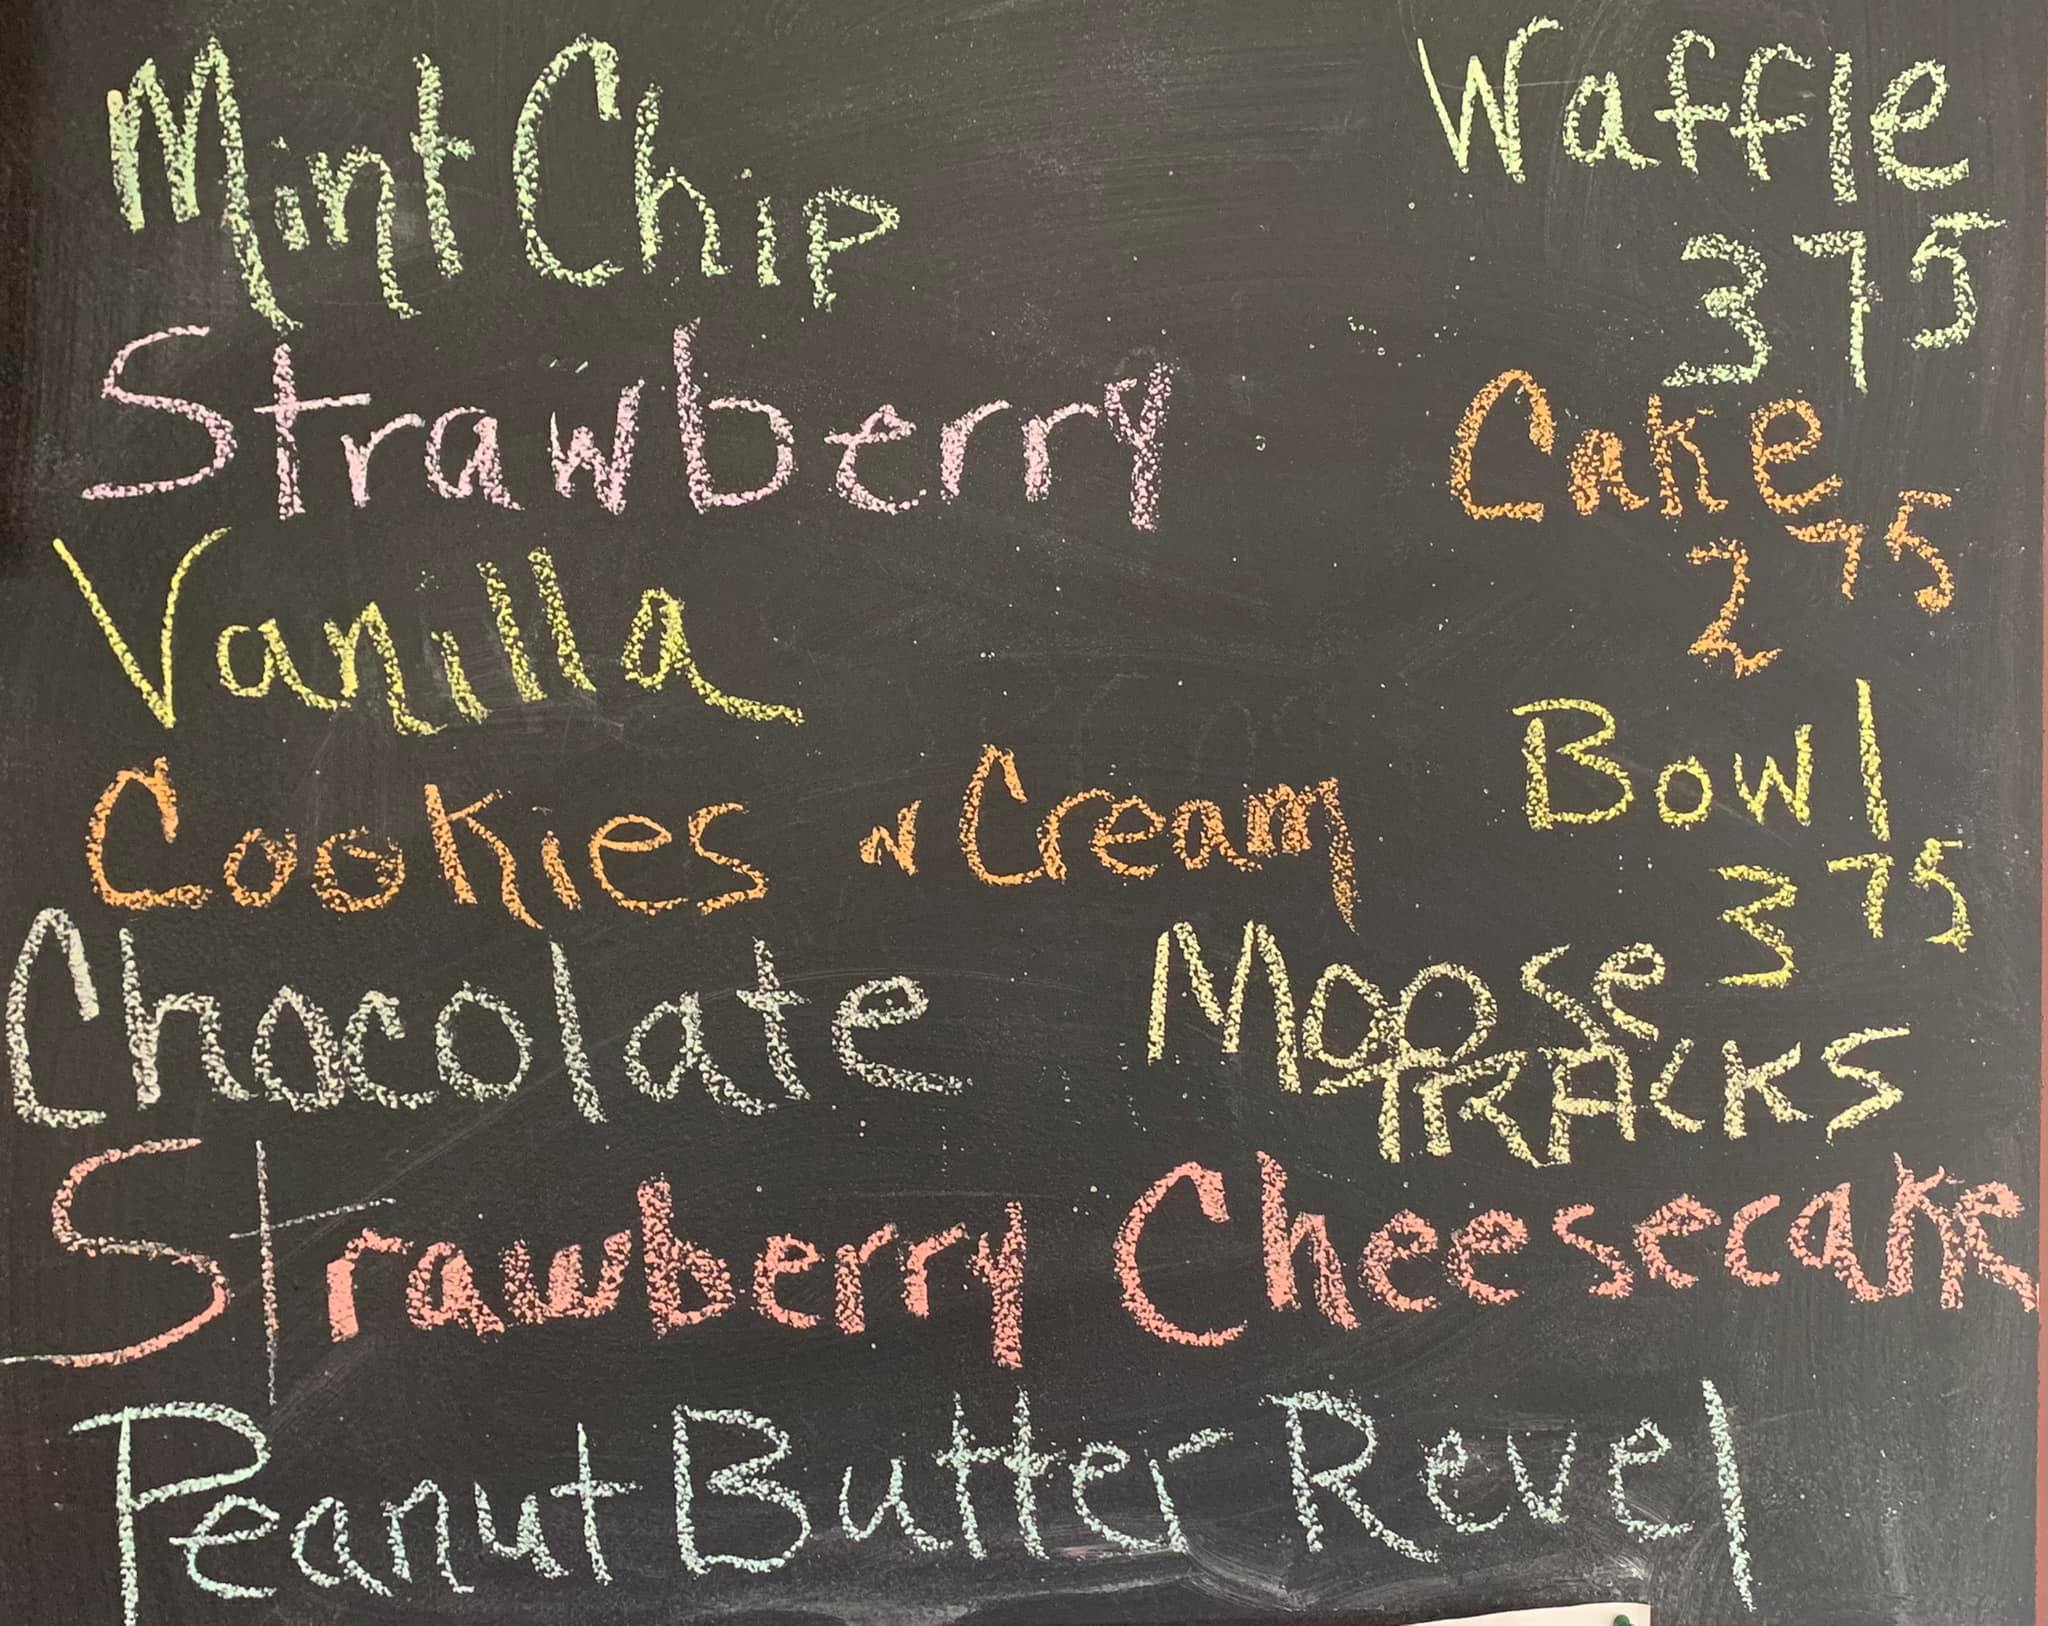 Mint Chip
Strawberry
Vanilla
Cookies n Cream
Chocolate
Moose
TRACKS
Strawberry Cheesecake
Peanut Butter Revel
Waffle
3 75
Cake
2 75
Bowl
3 75